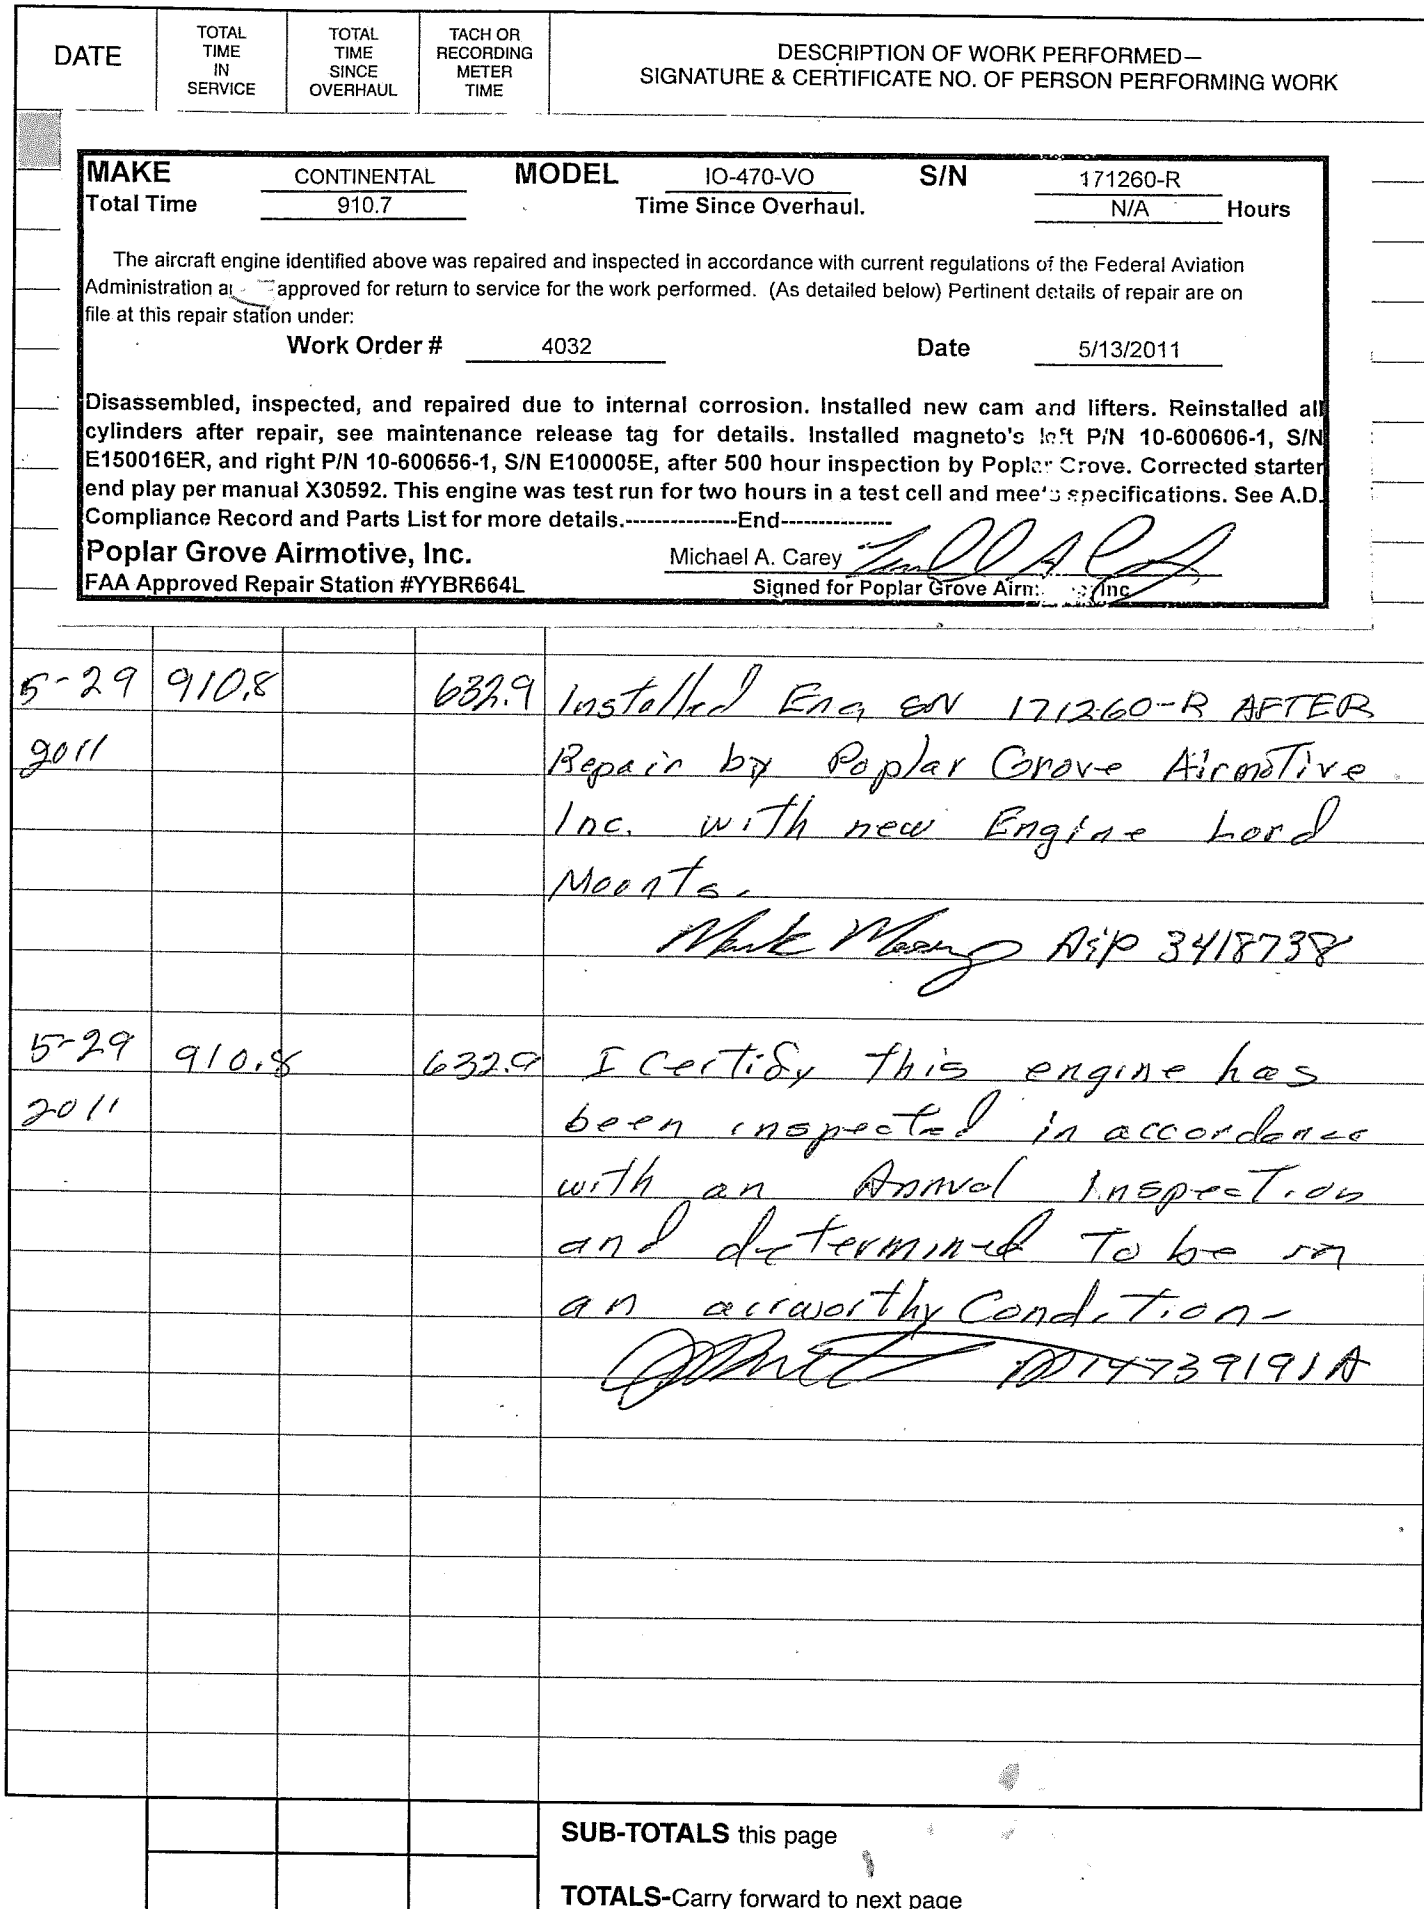 DATE
TOTAL TIME IN SERVICE
TOTAL TIME SINCE OVERHAUL
TACH OR RECORDING METER TIME
DESCRIPTION OF WORK PERFORMED—
SIGNATURE & CERTIFICATE NO. OF PERSON PERFORMING WORK
MAKE CONTINENTAL MODEL IO-470-VO S/N 171260-R
Total Time 910.7 Time Since Overhaul. N/A Hours
The aircraft engine identified above was repaired and inspected in accordance with current regulations of the Federal Aviation
Administration approved for return to service for the work performed. (As detailed below) Pertinent details of repair are on
file at this repair station under:
Work Order # 4032 Date 5/13/2011
Disassembled, inspected, and repaired due to internal corrosion. Installed new cam and lifters. Reinstalled all
cylinders after repair, see maintenance release tag for details. Installed magneto's left P/N 10-600606-1, S/N
E150016ER, and right P/N 10-600656-1, S/N E100005E, after 500 hour inspection by Poplar Grove. Corrected starter
end play per manual X30592. This engine was test run for two hours in a test cell and meets specifications. See A.D.
Compliance Record and Parts List for more details.---------------End---------------
Poplar Grove Airmotive, Inc. Michael A. Carey
FAA Approved Repair Station #YYBR664L Signed for Poplar Grove Inc
5-29 910.8 632.9 Installed Eng SN 171260-R AFTER
2011 Repair by Poplar Grove Airmotive
Inc. with new Engine Lord
Mounts.
Mark A&P 3418738
5-29 910.8 632.9 I Certify this engine has
2011 been inspected in accordance
with an Annual Inspection
and determined to be in
an airworthy Condition-
SUB-TOTALS this page
TOTALS-Carry forward to next page